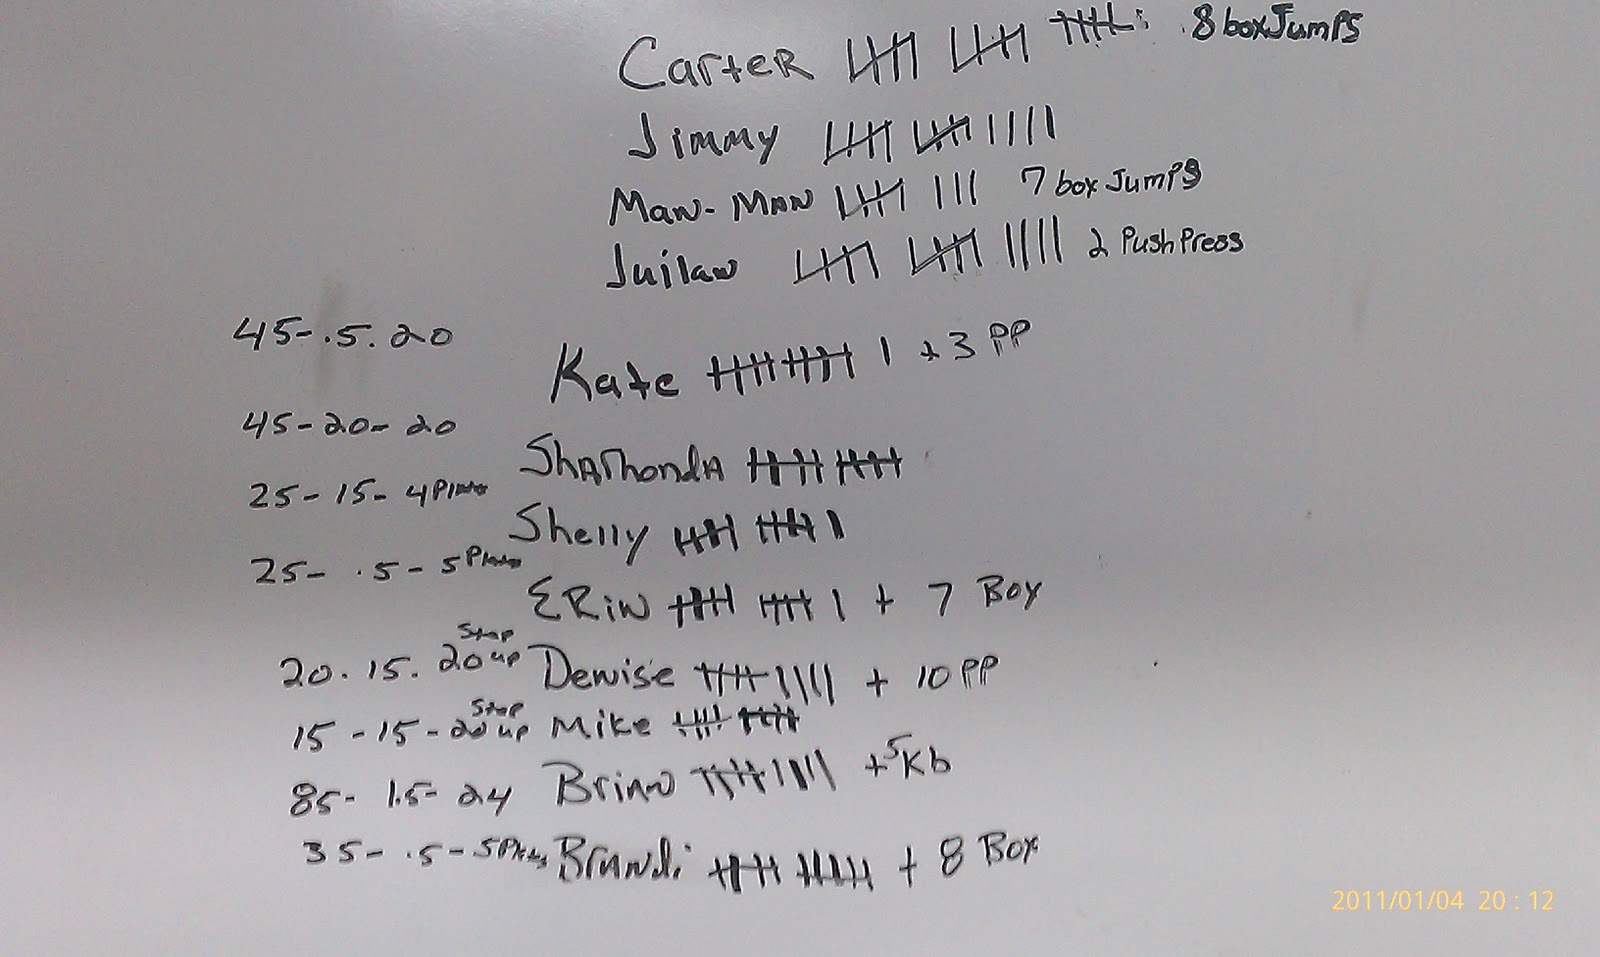 Carter 8 boxJumps
Jimmy
Maw-MAN 7 boxJumps
Juilaw 2 PushPress
45-.5.20
Kate + 3 PP
45-20-20
ShaRhondA
25-15-4Plates
Shelly
25-.5-5Plates
ERiN + 7 Box
20.15.20 Step up
Denise + 10 PP
15-15-20 Step up
Mike
85-1.5-24
Brian +5Kb
35-.5-5Plates
Brandi + 8 Box
2011/01/04 20:12